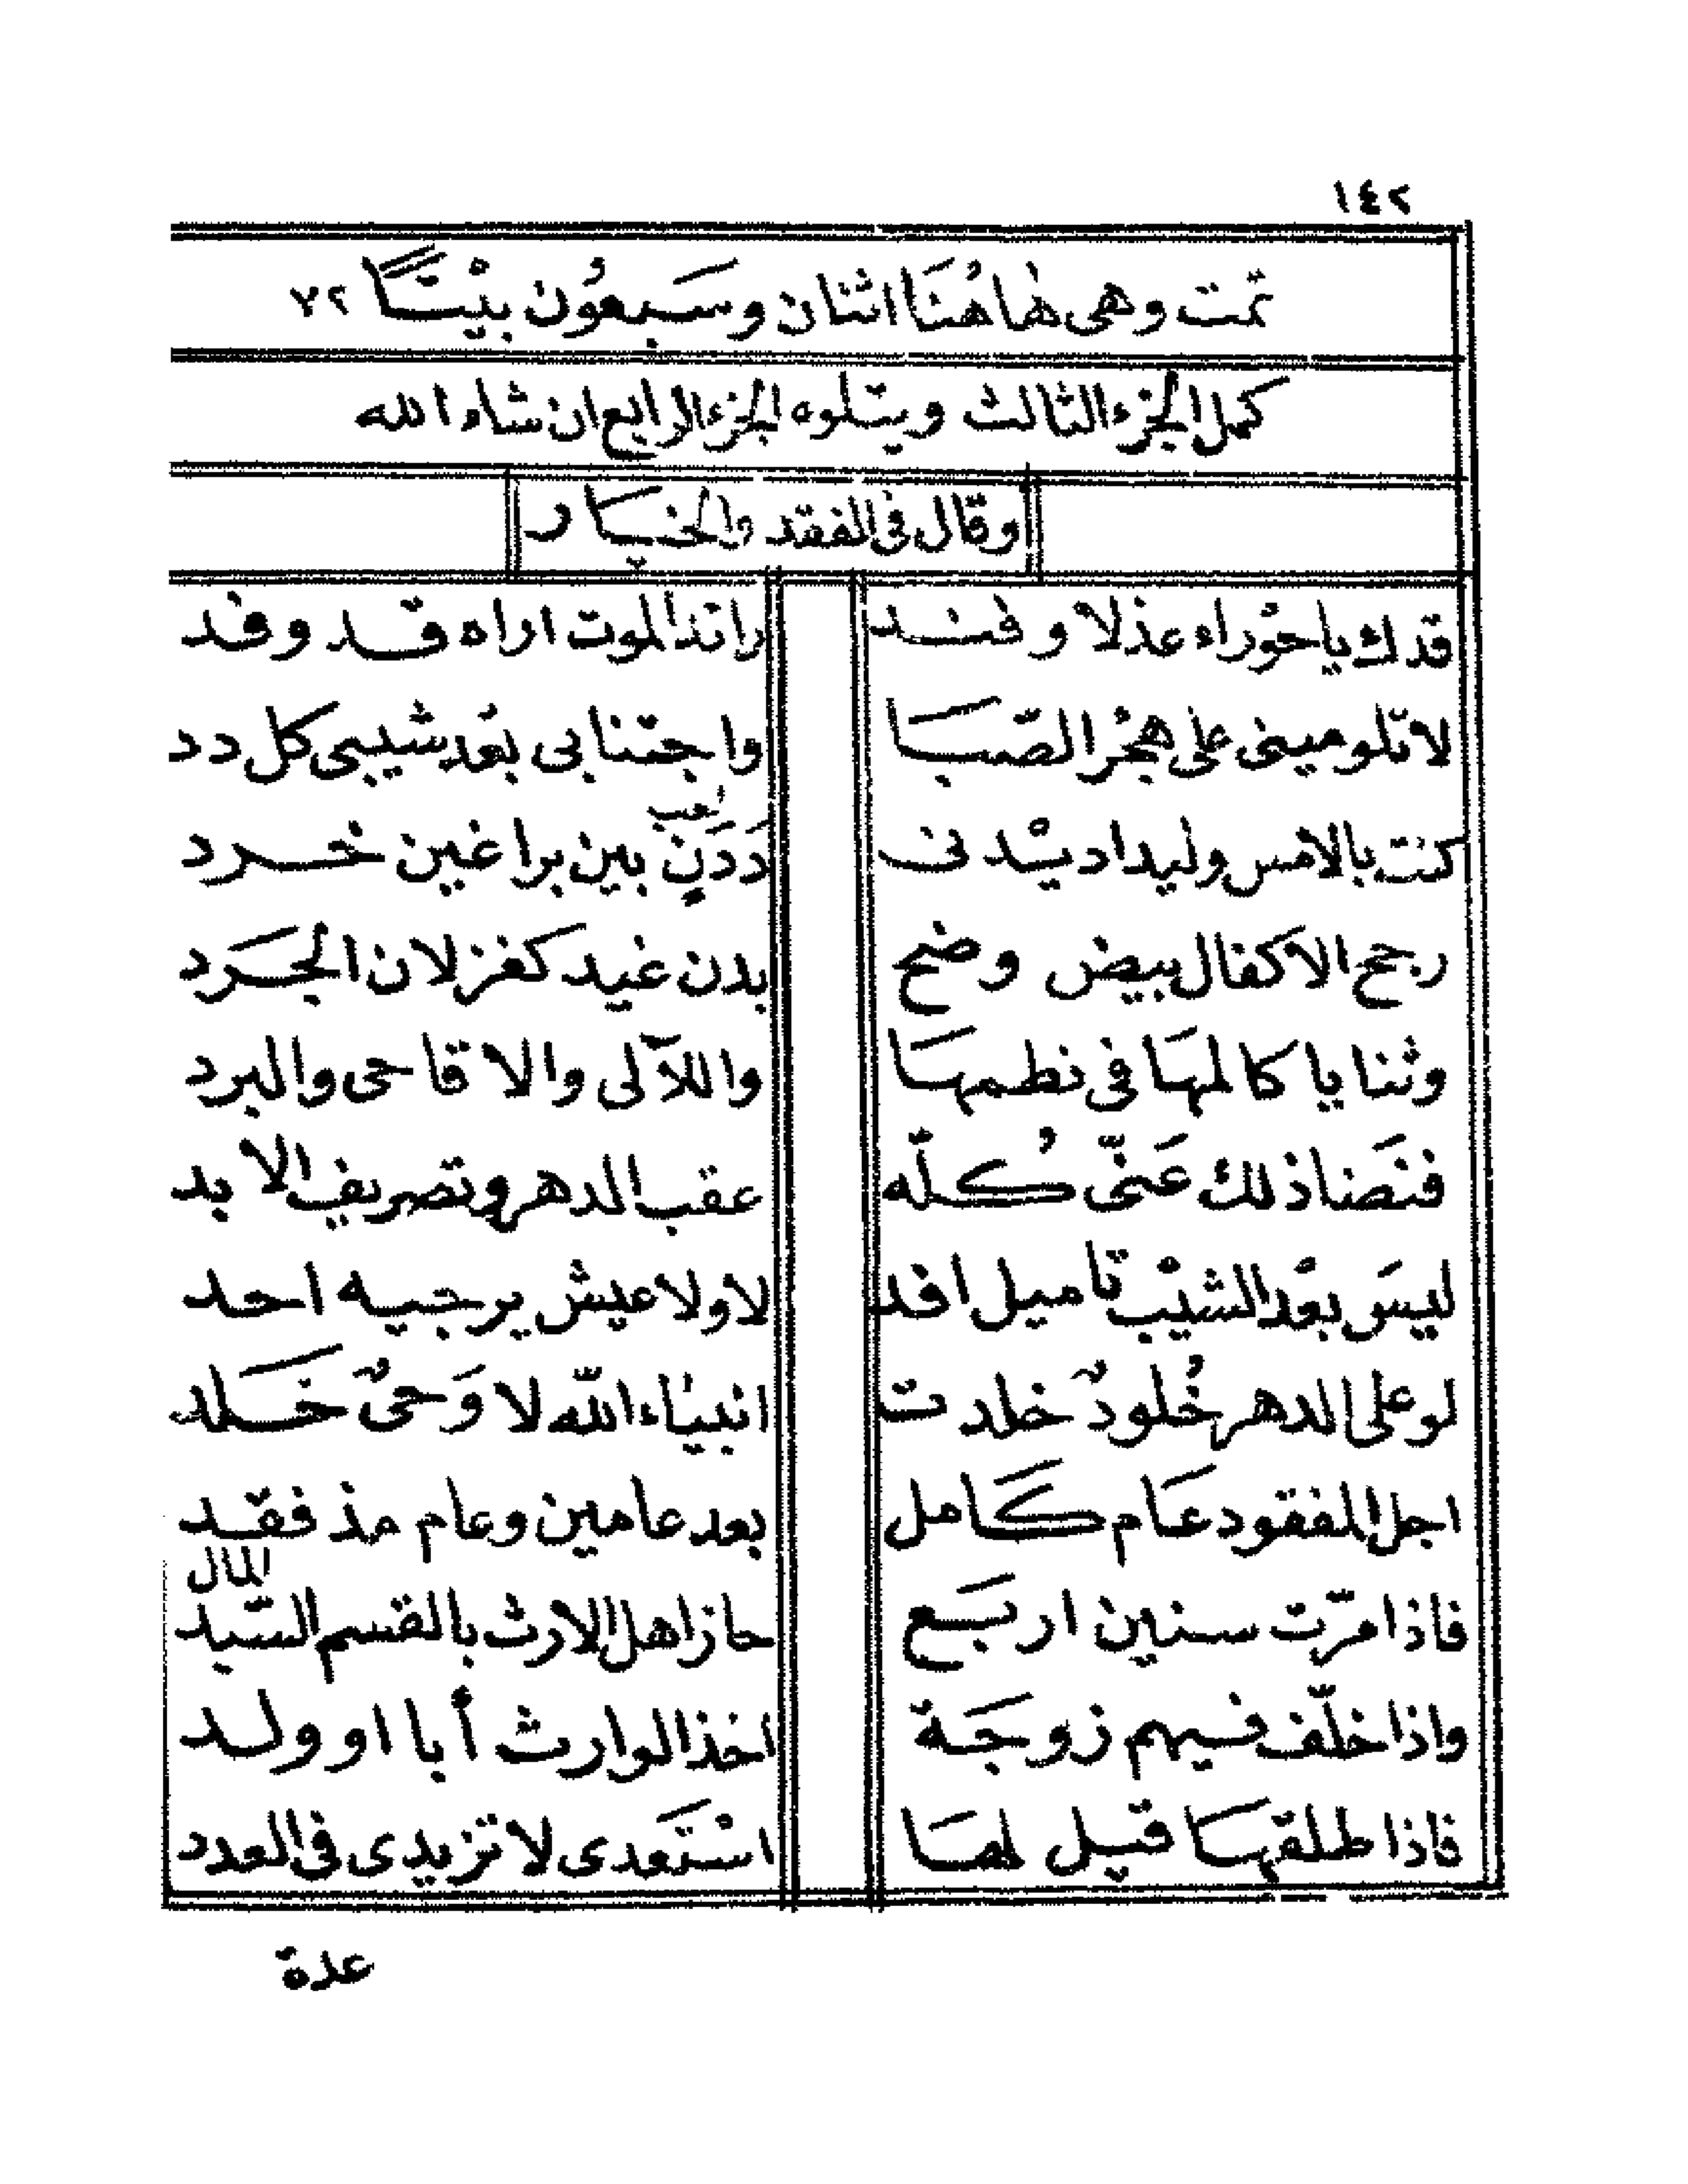 ١٤٢
تمت وهى هٰاهُنَا اثنان وسَبعُون بيْتًا ٧٢
كمل الجزء الثالث ويتلوه الجزء الرابع ان شاء الله
وقال فى الفقد والخيار
قدك يا حوْراء عذلا وفند رائد الموت اراه قد وفد
لا تلوميننى على هجْر الصّبَا واجتنابى بعْد شيبى كل دد
لعب
كنت بالامس وليدا ديْدنى دَدَنٍ بين براغين خرد
رجح الاكفال بيض وضح بدن غيد كغزلان الجَرد
وثنايا كالمهَا فى نظمهَا واللآلى والاقاحى والبرد
فنضَا ذلك عَنّى كُلّه عقب الدهر وتصريف الابد
ليسَ بعْد الشيْب تاميل افد لا ولا عيش يرجيه احد
لو على الدهر خُلودٌ خلدت انبيٰاء اللّه لا وَحىٌ خَلد
اجل المفقود عَام كَامل بعد عامين وعام مذ فقد
المال
فاذا مرّت سنين اربَع حاز اهل الارث بالقسم السّبد
واذا خلّف فيهم زوجَة اخذ الوارث أبا او ولد
فاذا طلقهَا قيل لهَا اسْتَعدى لا تزيدى فى العدد
عدة